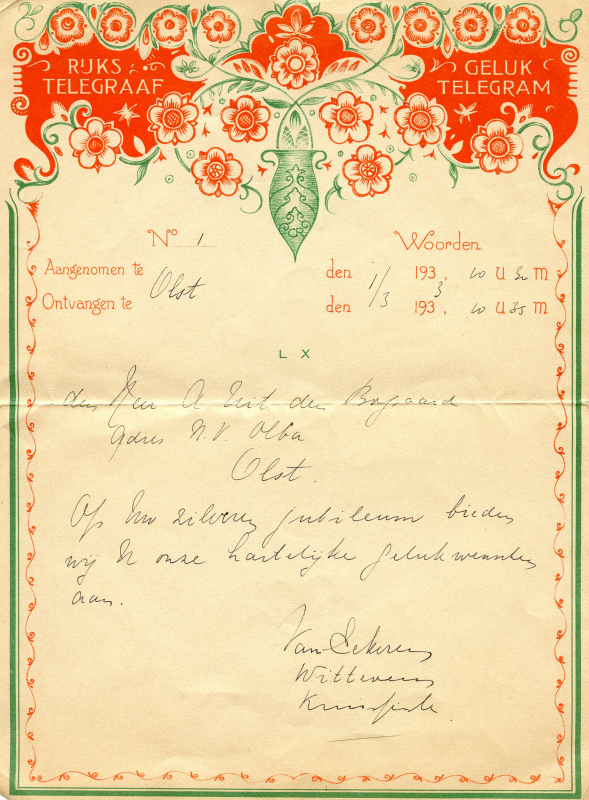 RIJKS
TELEGRAAF
GELUK
TELEGRAM
No 1
Woorden.
Aangenomen te
den 1/3 1933, 10 U 30 M
Ontvangen te Olst
den 193 , 10 U 35 M
L X
den Heer A Uit den Bogaard
Adres N.V. Olba
Olst.
Op Uw zilveren jubileum bieden
wij U onze hartelijke gelukwenschen
aan.
Van Eekeren
Witteveen